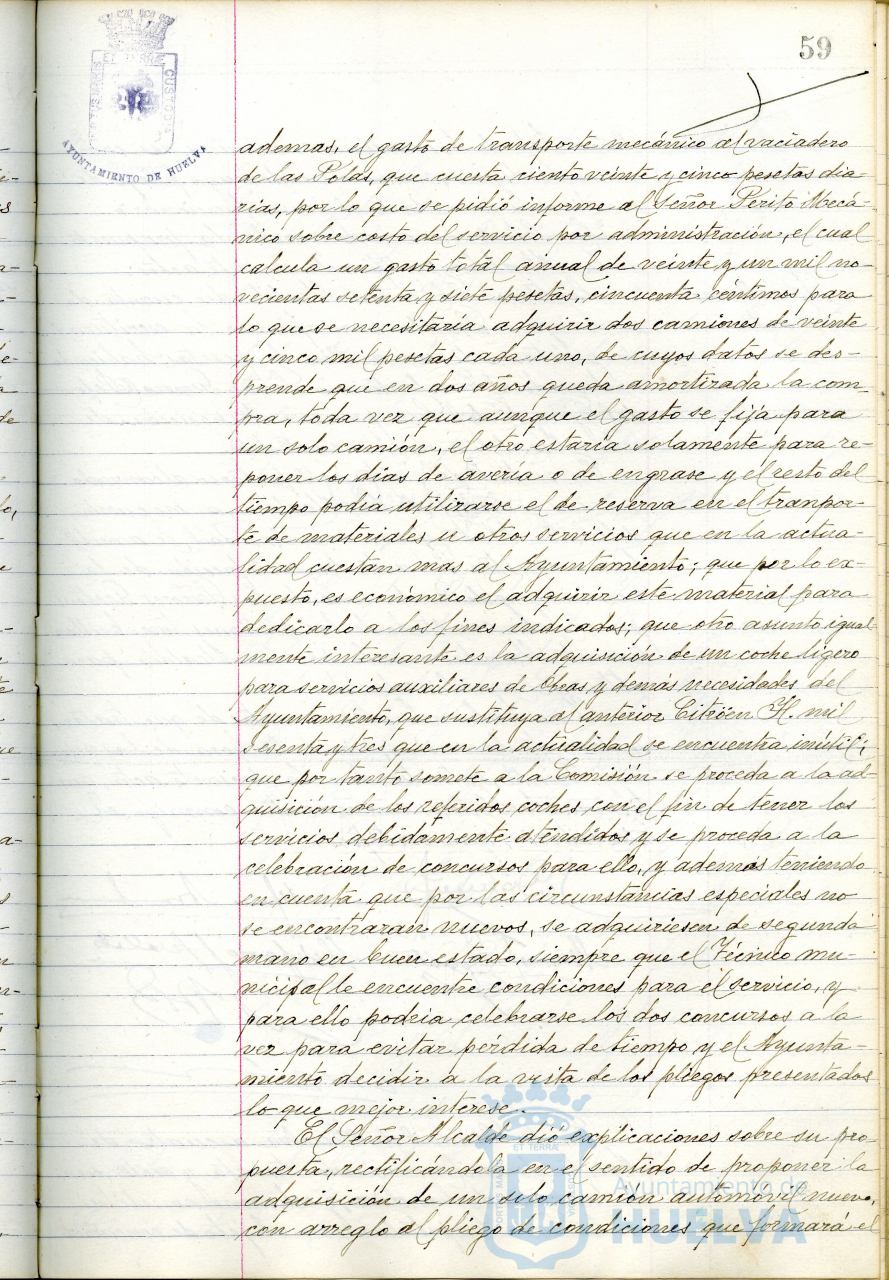 59
PORTUS MARIS ET TERRÆ CUSTODIA
AYUNTAMIENTO DE HUELVA
ademas, el gasto de transporte mecánico al vaciadero
de las Potas, que cuesta ciento veinte y cinco pesetas dia-
rias, por lo que se pidió informe al Señor Perito Mecá-
nico sobre costo del servicio por administración, el cual
calcula un gasto total anual de veinte y un mil no-
vecientas setenta y siete pesetas, cincuenta céntimos para
lo que se necesitaría adquirir dos camiones de veinte
y cinco mil pesetas cada uno, de cuyos datos se des-
prende que en dos años queda amortizada la com-
pra, toda vez que aunque el gasto se fija para
un solo camión, el otro estaría solamente para re-
poner los dias de avería o de engrase y el resto del
tiempo podía utilizarse el de reserva en el tranpor-
te de materiales u otros servicios que en la actua-
lidad cuestan mas al Ayuntamiento; que por lo ex-
puesto, es económico el adquirir este material para
dedicarlo a los fines indicados; que otro asunto igual
mente interesante es la adquisición de un coche ligero
para servicios auxiliares de Obras y demás necesidades del
Ayuntamiento, que sustituya al anterior Citröen H. mil
sesenta y tres que en la actualidad se encuentra inútil;
que por tanto somete a la Comisión se proceda a la ad-
quisición de los referidos coches con el fin de tener los
servicios debidamente atendidos y se proceda a la
celebración de concursos para ello, y además teniendo
en cuenta que por las circunstancias especiales no
se encontraran nuevos, se adquiriesen de segunda
mano en buen estado, siempre que el Técnico mu-
nicipal le encuentre condiciones para el servicio, y
para ello podría celebrarse los dos concursos a la
vez para evitar pérdida de tiempo y el Ayunta-
miento decidir a la vista de los pliegos presentados
lo que mejor interese.
El Señor Alcalde dió explicaciones sobre su pro-
puesta, rectificándola en el sentido de proponer la
adquisición de un solo camión automóvil nuevo,
con arreglo al pliego de condiciones que formará el
Ayuntamiento de
HUELVA